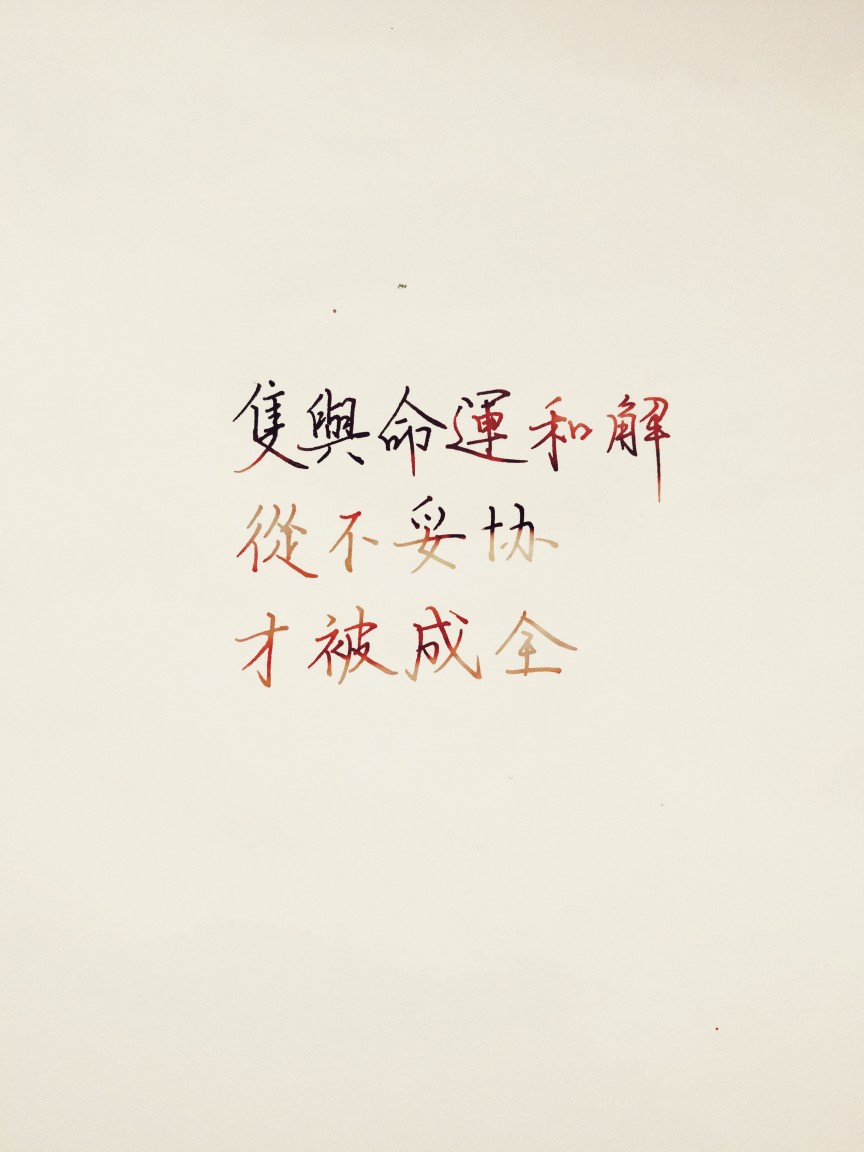 隻與命運和解
從不妥协
才被成全